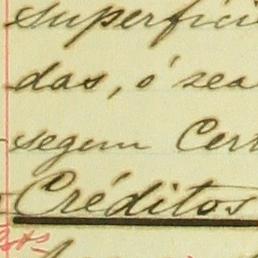 superfici
das, ó sea
segun Cert
Créditos